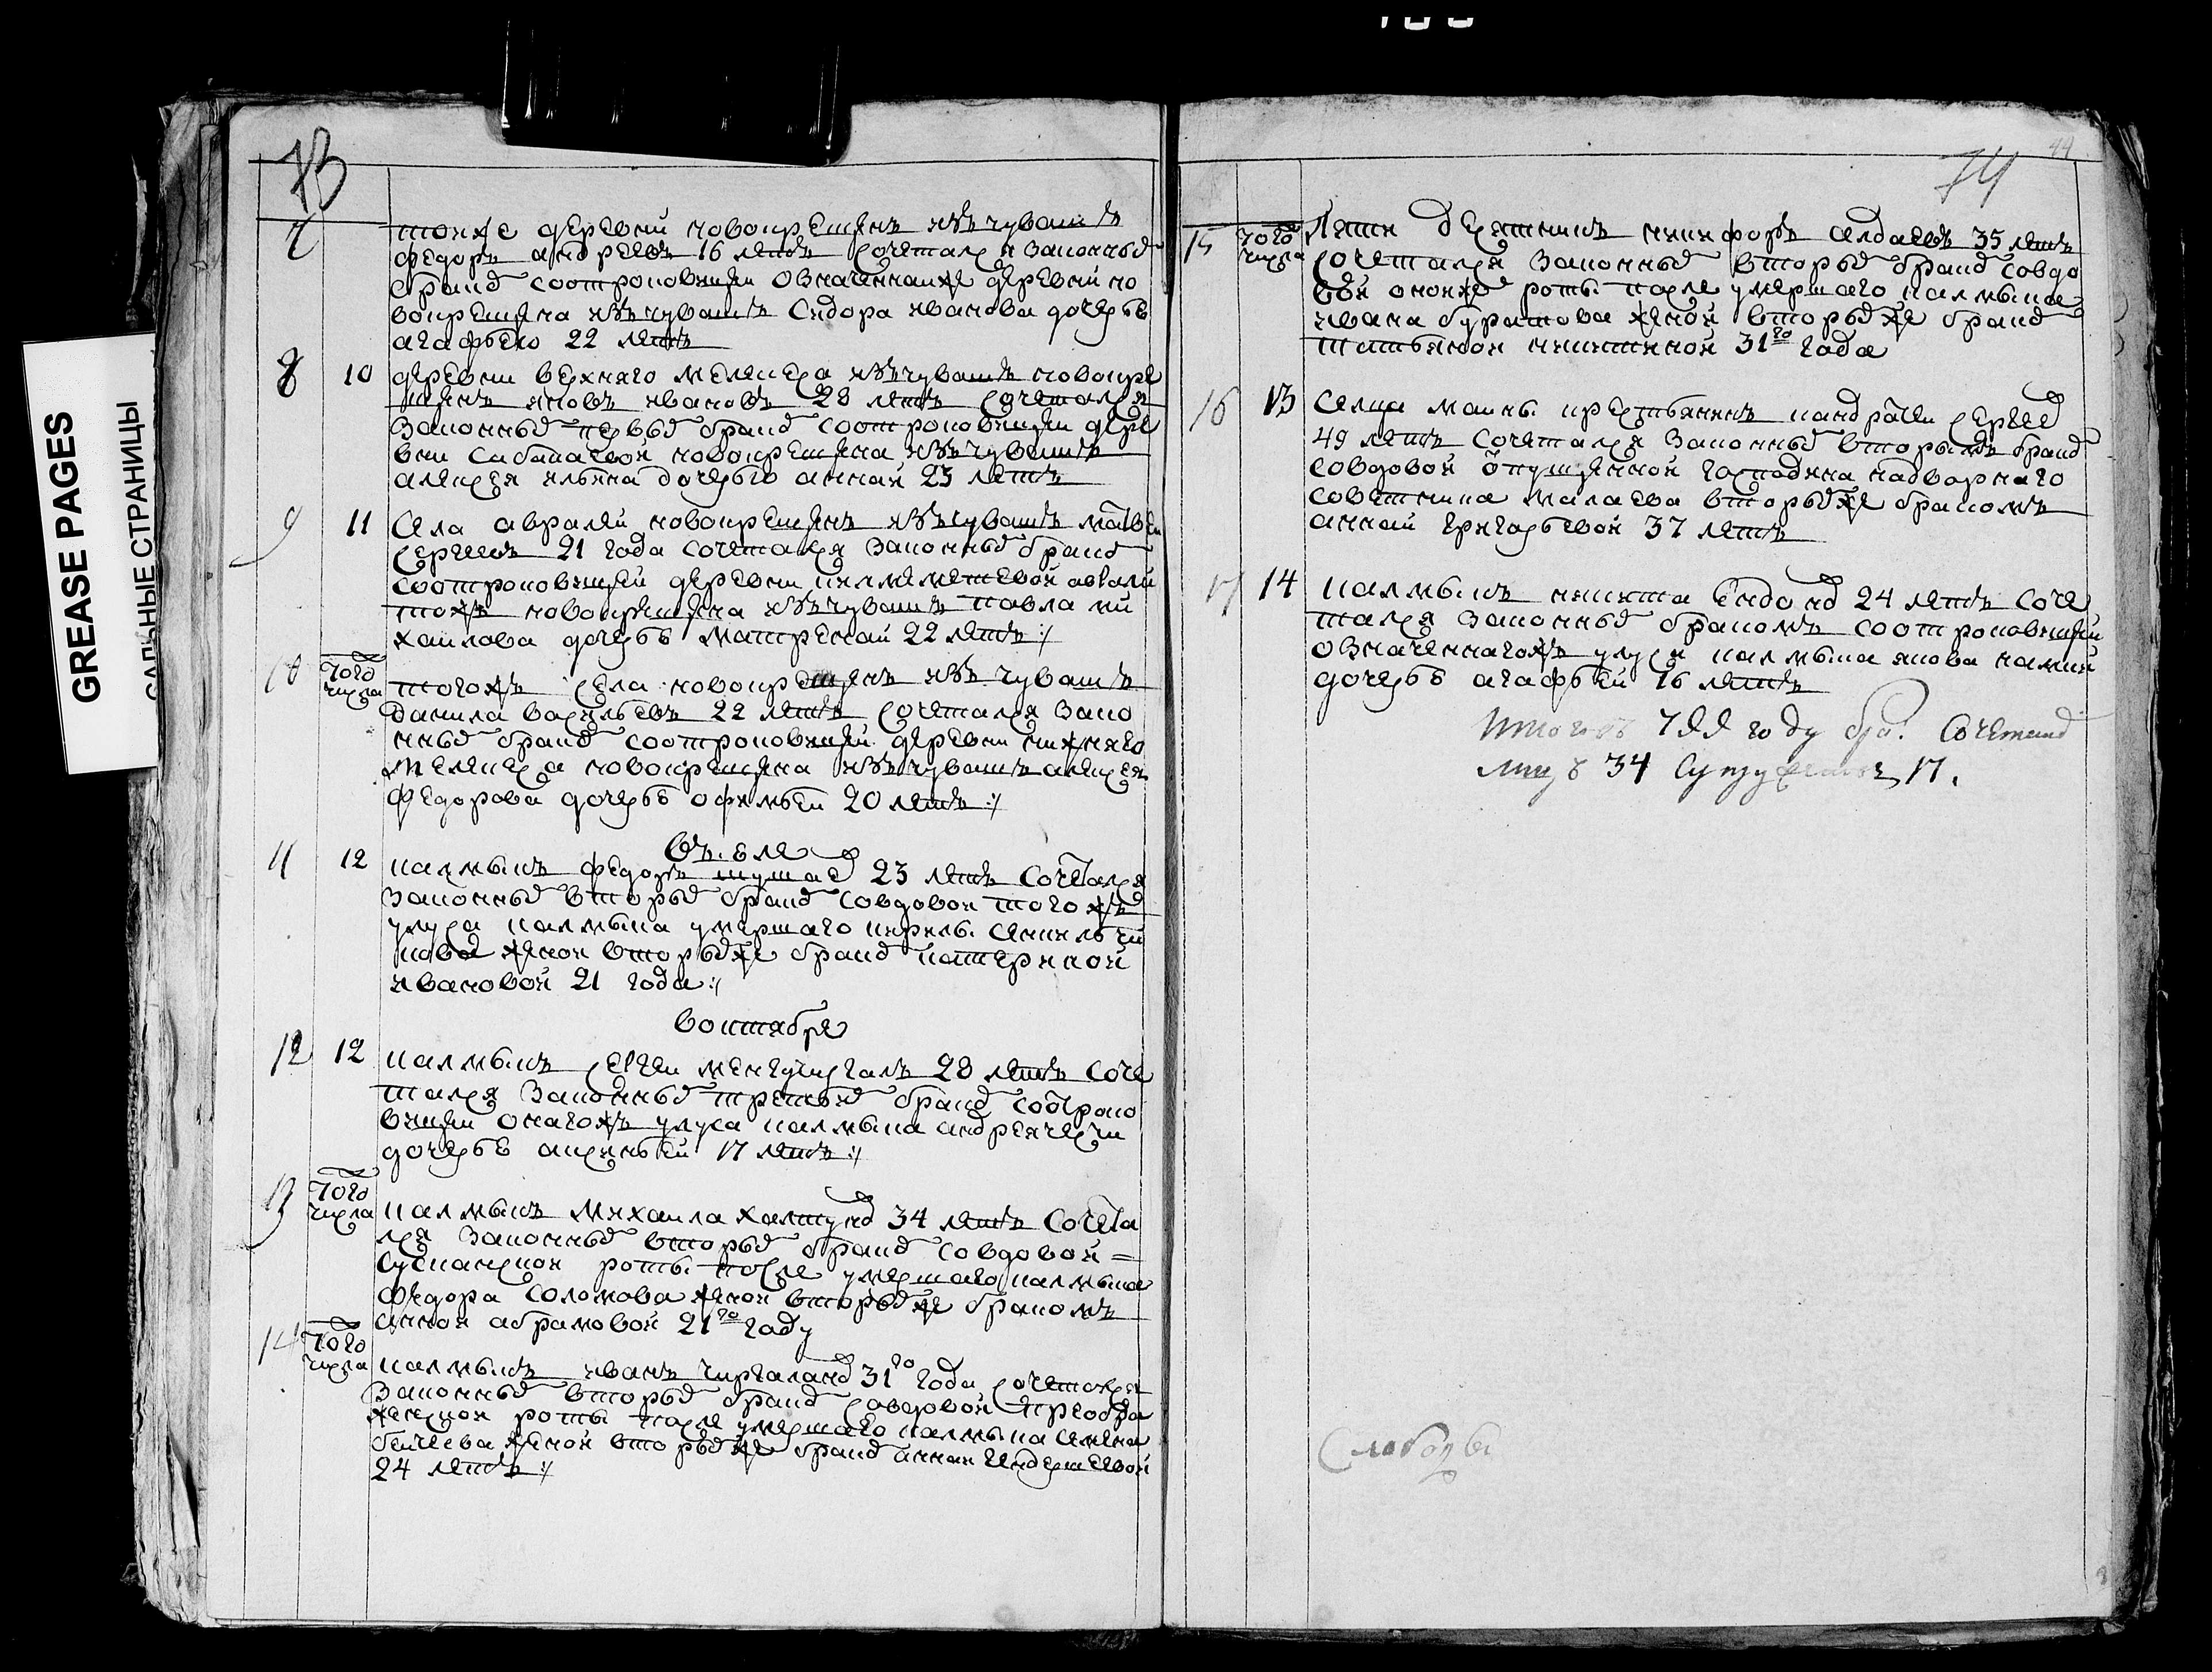 73
7 тояже деревни новокрещенъ изъчувашъ
федоръ андреевъ 16 летъ сочетался законнымъ
бракомъ соотроковицеи означеннаиже деревни но
вокрещена изъчувашъ сидора иванова дочерью
агафьею 22 летъ
8 10 деревни верхняго мелекеса изъчувашъ новокре
щенъ яковъ ивановъ 28 летъ сочетался
законнымъ первымъ бракомъ соотроковицеи дере
вни сабакаевои новокрещена изъчувашъ
алексея ильина дочерью аннаи 23 летъ
9 11 села авралеи новокрещенъ изъчувашъ матвеи
сергеевъ 21 года сочетался законнымъ бракомъ
соотроковицеи деревни авгали
тожъ новокрещена изъчувашъ павла ми
хаилова дочерью матренаи 22 летъ :/
10 того числа тогожъ села новокрещенъ изъ чувашъ
данила васильевъ 22 летъ сочетался зако
ннымъ бракомъ соотроковицеи деревни нижняго
мелекеса новокрещена изъчувашъ алексея
федорова дочерью офимьеи 20 летъ :/
11 12 калмыкъ федоръ 23 летъ сочетался
законнымъ вторымъ бракомъ совдовои тогожъ
улуса калмыка умершаго
женои вторымже бракомъ катериноя
ивановои 21 года :/
воктября
12 12 калмыкъ сергеи 28 летъ соче
тался законнымъ третьимъ бракомъ соотроко
вицеи онагожъ улуса калмыка андрея
дочерью аксиньеи 17 летъ :/
13 того числа калмыкъ михаила 34 летъ сочета
лся законнымъ вторымъ бракомъ совдовои =
роты после умершаго калмыка
федора соломова женои вторымже бракомъ
аннои абрамовои 21го году
14 того числа калмыкъ иванъ 31го года сочетался
законнымъ вторымъ бракомъ совдовои преобра
женскои роты после умершаго калмыка семена
женои вторымже бракомъ аннаи
24 летъ :/
44
74
15 того числа пяти десятникъ никифоръ 35 летъ
сочетался законнымъ вторымъ бракомъ совдо
вои оноиже роты после умершаго калмыка
ивана буратова женои вторымже бракомъ
татьянои никитинои 31го года
16 13 села маины крестьянинъ кандратеи сергеевъ
49 летъ сочетался законнымъ вторымъ бракомъ
совдовои опущенной господина надворнаго
советника малаева вторымже бракомъ
аннаи григорьевои 37 летъ
17 14 калмыкъ никита 24 летъ соче
тался законнымъ бракомъ соотроковицеи
означеннагожъ улуса калмыка якова
дочерью агафьеи 16 летъ
итого въ году бра. сочетано
лицъ 34 супружествъ 17.
слободы
GREASE PAGES
САЛЬНЫЕ СТРАНИЦЫ